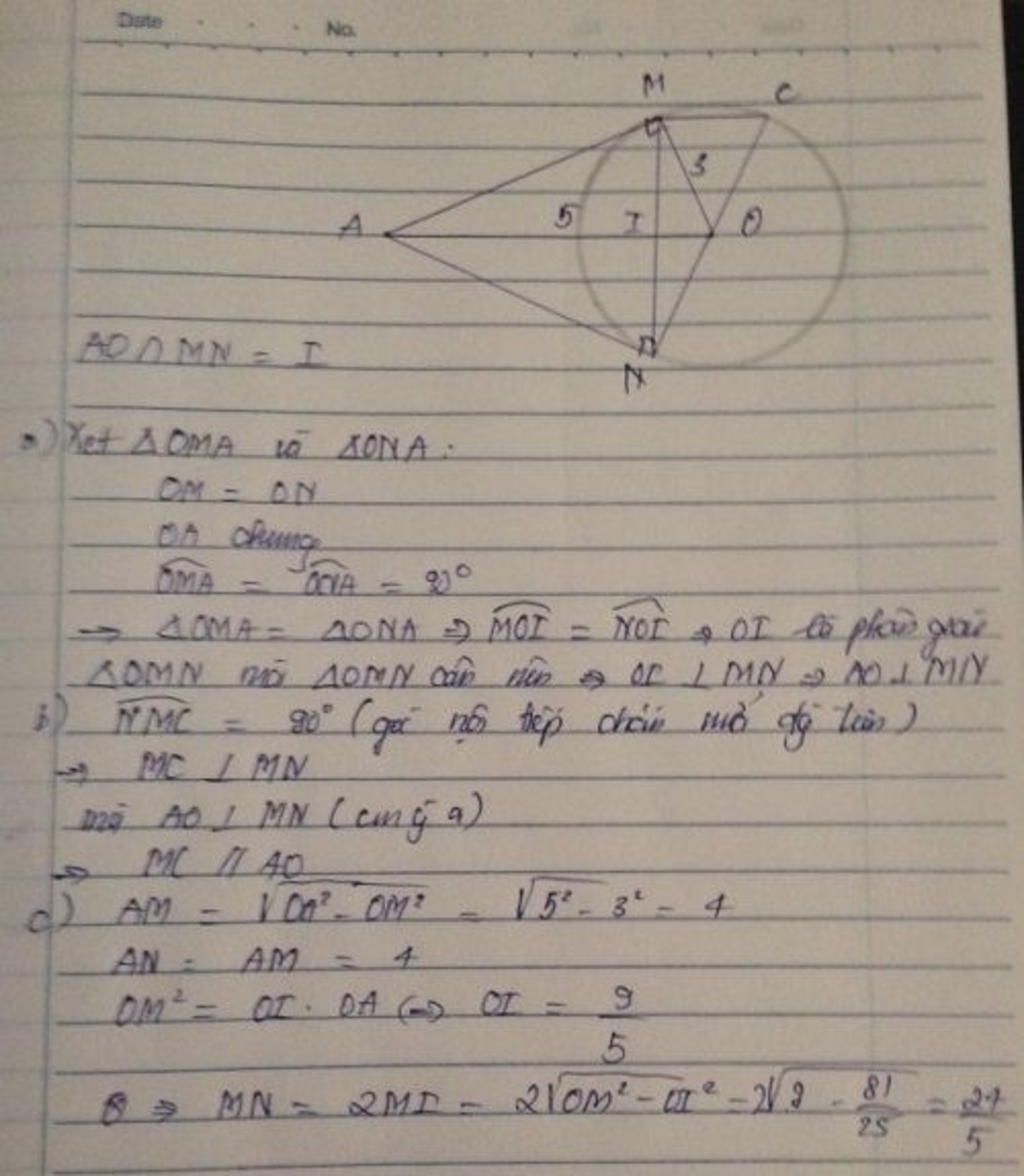 Date
No.
M
C
3
A
5
I
O
N
AO ∩ MN = I
a) Xét △OMA và △ONA :
OM = ON
OA chung
\widehat{OMA} = \widehat{ONA} = 90°
→ △OMA = △ONA ⇒ \widehat{MOI} = \widehat{NOI} ⇒ OI là phân giác
△OMN mà △OMN cân nên ⇒ OI ⊥ MN ⇒ AO ⊥ MN
b) \widehat{NMC} = 90° (góc nội tiếp chắn nửa đg tròn)
⇒ MC ⊥ MN
mà AO ⊥ MN (cm ý a)
⇒ MC // AO
c) AM = √(OA² - OM²) = √(5² - 3²) = 4
AN = AM = 4
OM² = OI . OA ⇔ OI = 9/5
⇒ MN = 2MI = 2√(OM² - OI²) = 2√(9 - 81/25) = 24/5